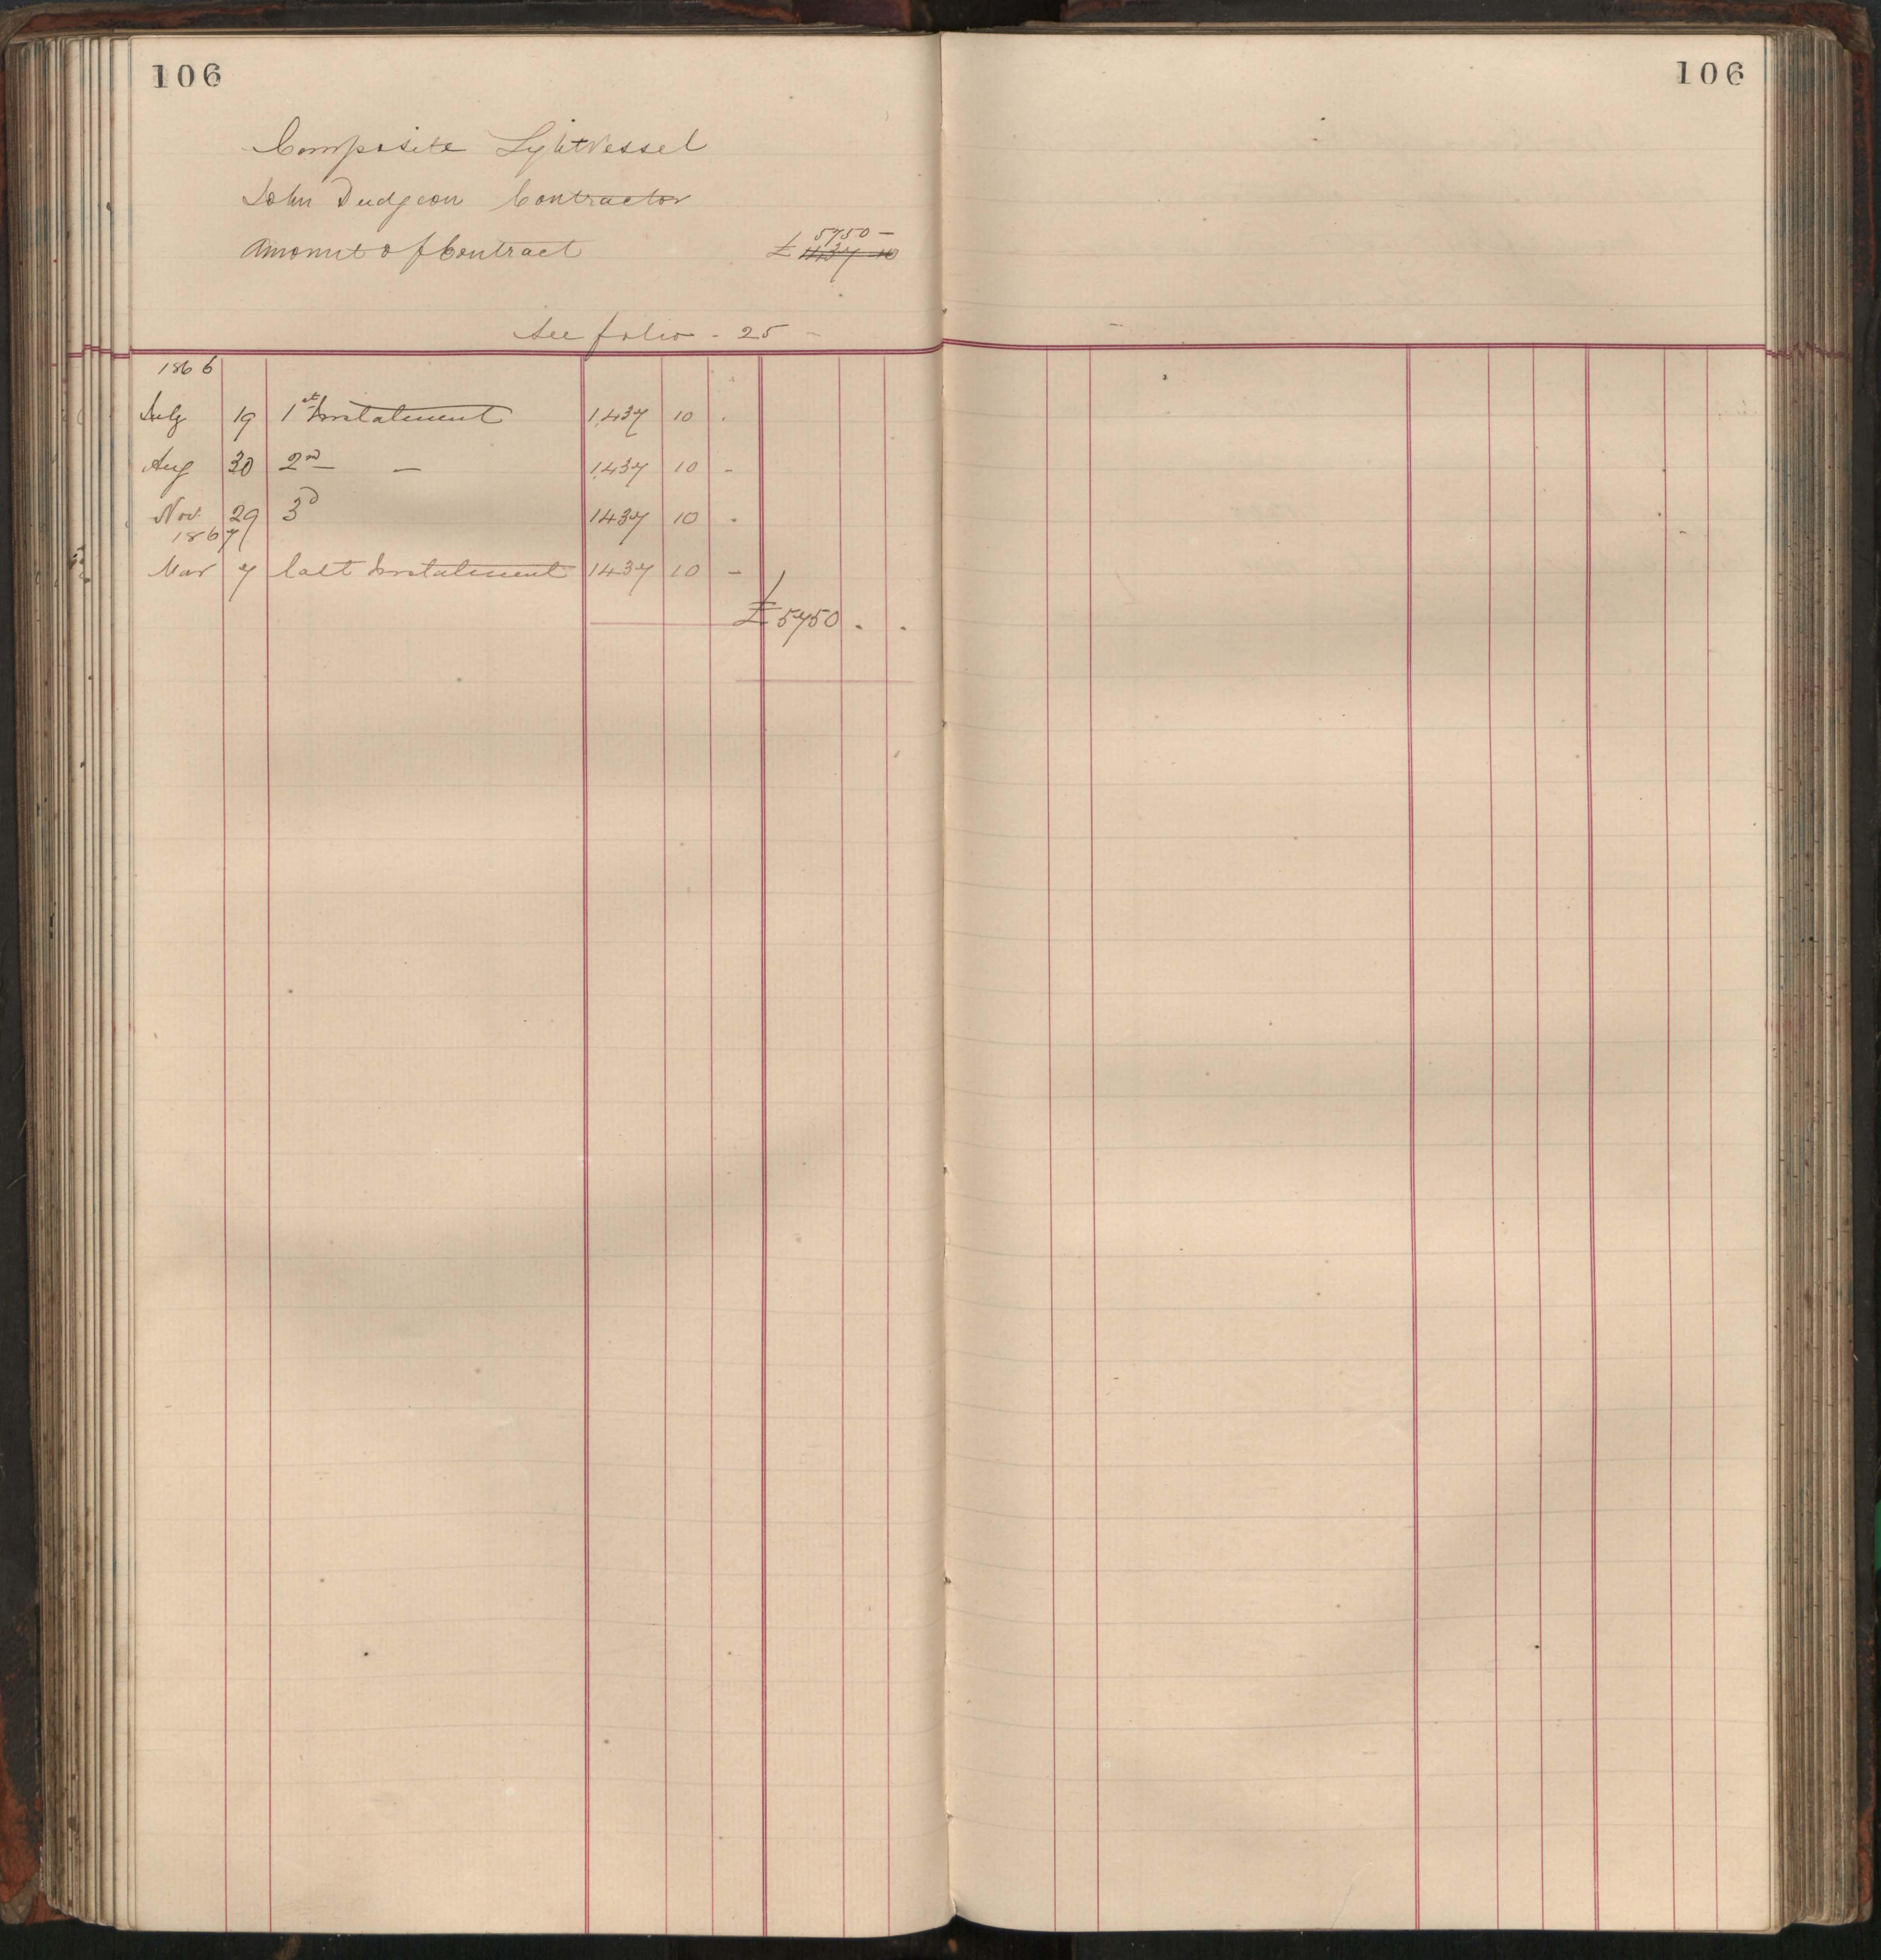 106
106
Composite Lightvessel
John Dudgeon Contractor
5750 -
Amount of Contract £ 1437 10
See folio - 25 -
1866
July 19 1st Instalment 1,437 10 .
Aug 30 2nd — 1,437 10 -
Nov. 29 3d 1437 10 .
1867
Mar 7 last Instalment 1437 10 -
£ 5750 . .